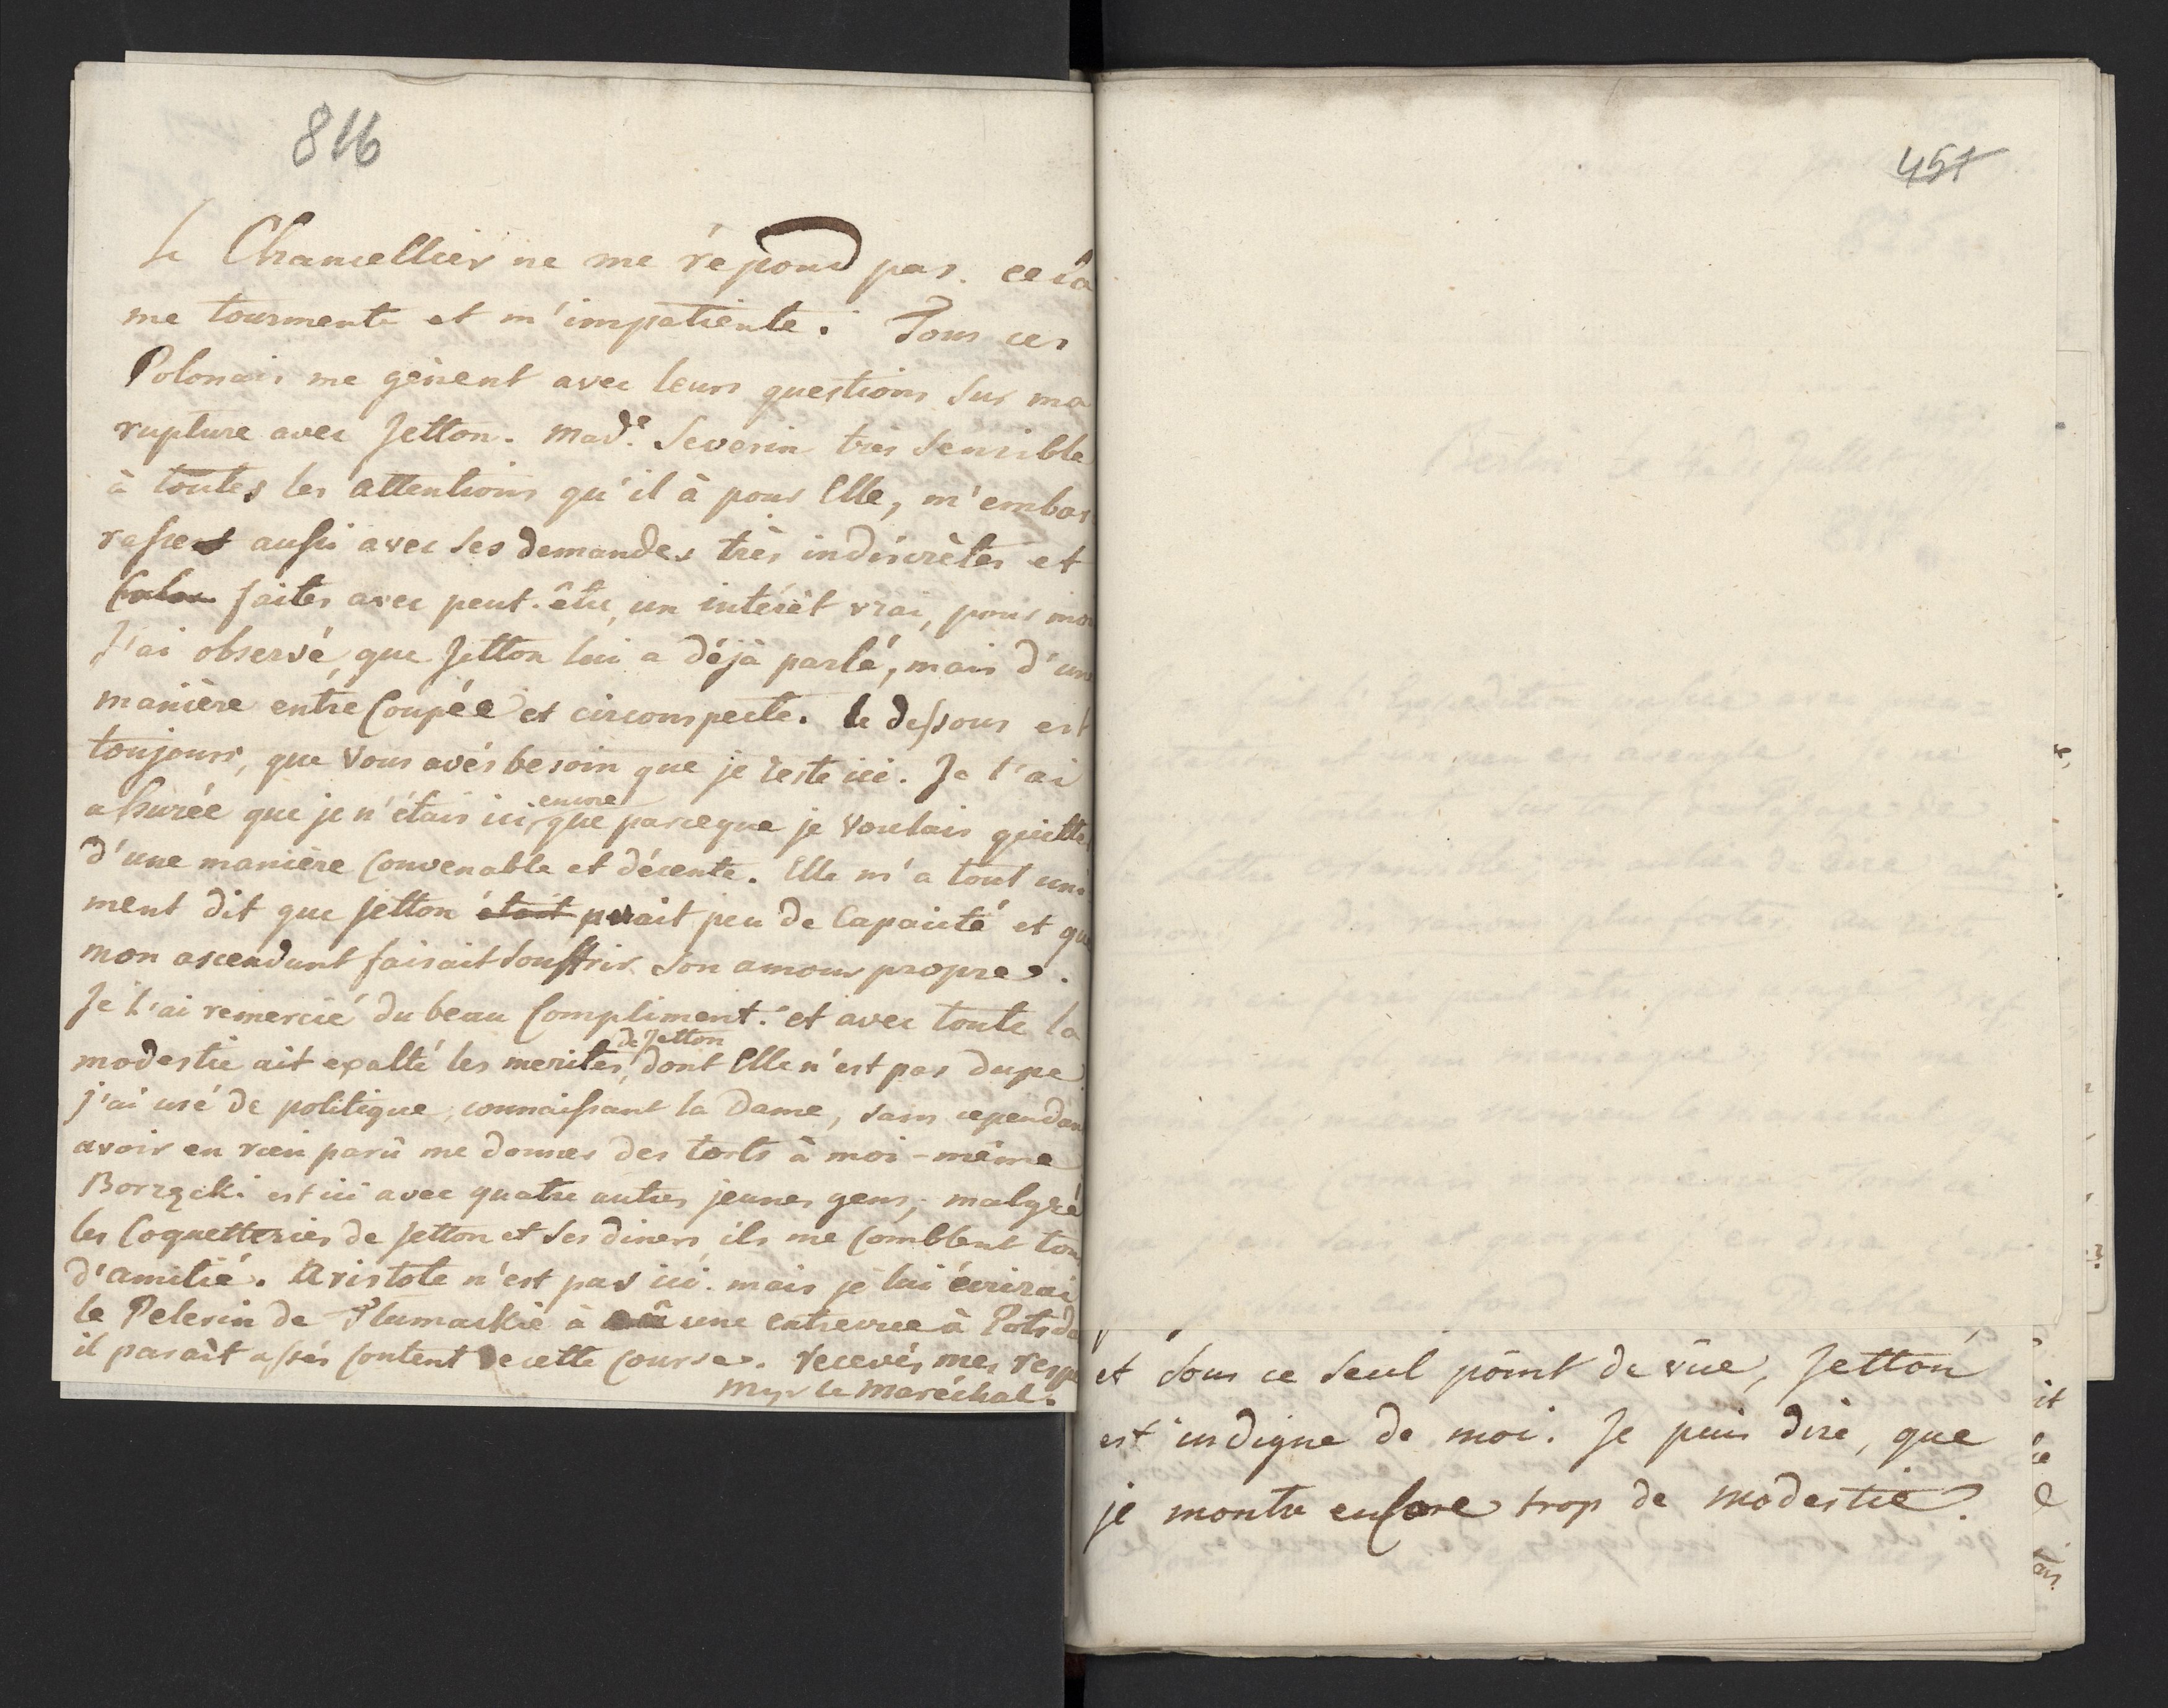 816
Le Chancellier ne me répond pas. cela
me tourmente et m'impatiente. Tous ces
Polonais me gènent avec leurs questions sur ma
rupture avec Jetton. Made. Severin très sensible
à toutes les attentions qu'il à pour Elle, m'embar
rasse aussi avec ses demandes très indiscrètes et
faites avec peut-être, un intérêt vrai, pour moi
J'ai observé, que Jetton lui a déjà parlé, mais d'une
manière entrecoupée et circonspecte. le dessous est
toujours, que vous avés besoin que je reste ici. Je l'ai
assurée que je n'étais ici encore que parceque je voulais quitter
d'une manière convenable et décente. Elle m'a tout uni
ment dit que Jetton était avait peu de Capacité et que
mon ascendant faisait souffrir son amour propre.
Je l'ai remercié du beau Compliment. et avec toute la
modestie ait exalté les merites de Jetton, dont Elle n'est pas dupe
j'ai usé de politique, connaissant la Dame, sans cependant
avoir en rien parû me donner des torts à moi-même
Borzęcki est ici avec quatre autres jeunes gens, malgré
les Coquetteries de Jetton et ses diners ils me comblent tous
d'amitié. Aristote n'est pas ici. mais je lui écrirai
le Pelerin de Tlumaskie à eû une entrevue à Potsda
il parait assés content de cette course. recevés mes resp
Mgr le Maréchal.
451
et sous ce seul point de vûe, Jetton
est indigne de moi. Je puis dire, que
je montre encore trop de modestie.